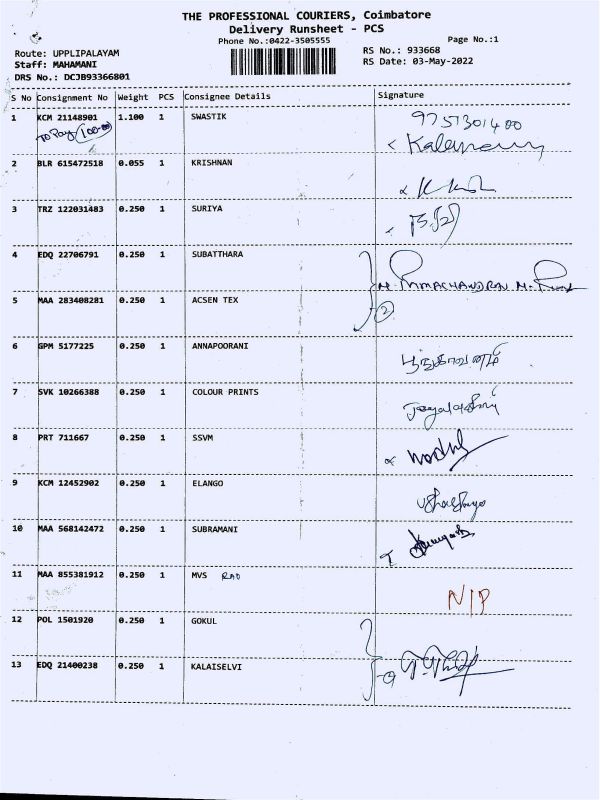 THE PROFESSIONAL COURIERS, Coimbatore
Delivery Runsheet - PCS
Phone No.:0422-3505555
Page No.:1
Route: UPPLIPALAYAM
RS No.: 933668
Staff: MAHAMANI
RS Date: 03-May-2022
DRS No.: DCJB93366801
S No Consignment No Weight PCS Consignee Details Signature
1 KCM 21148901 1.100 1 SWASTIK 9751301400
To Pay 100-00
2 BLR 615472518 0.055 1 KRISHNAN
3 TRZ 122031483 0.250 1 SURIYA
4 EDQ 22706791 0.250 1 SUBATTHARA
M. RAMACHANDRAN. M.
5 MAA 283408281 0.250 1 ACSEN TEX 2
6 GPM 5177225 0.250 1 ANNAPOORANI
7 SVK 10266388 0.250 1 COLOUR PRINTS
8 PRT 711667 0.250 1 SSVM
9 KCM 12452902 0.250 1 ELANGO
10 MAA 568142472 0.250 1 SUBRAMANI
11 MAA 855381912 0.250 1 MVS RAO
N/P
12 POL 1501920 0.250 1 GOKUL
13 EDQ 21400238 0.250 1 KALAISELVI